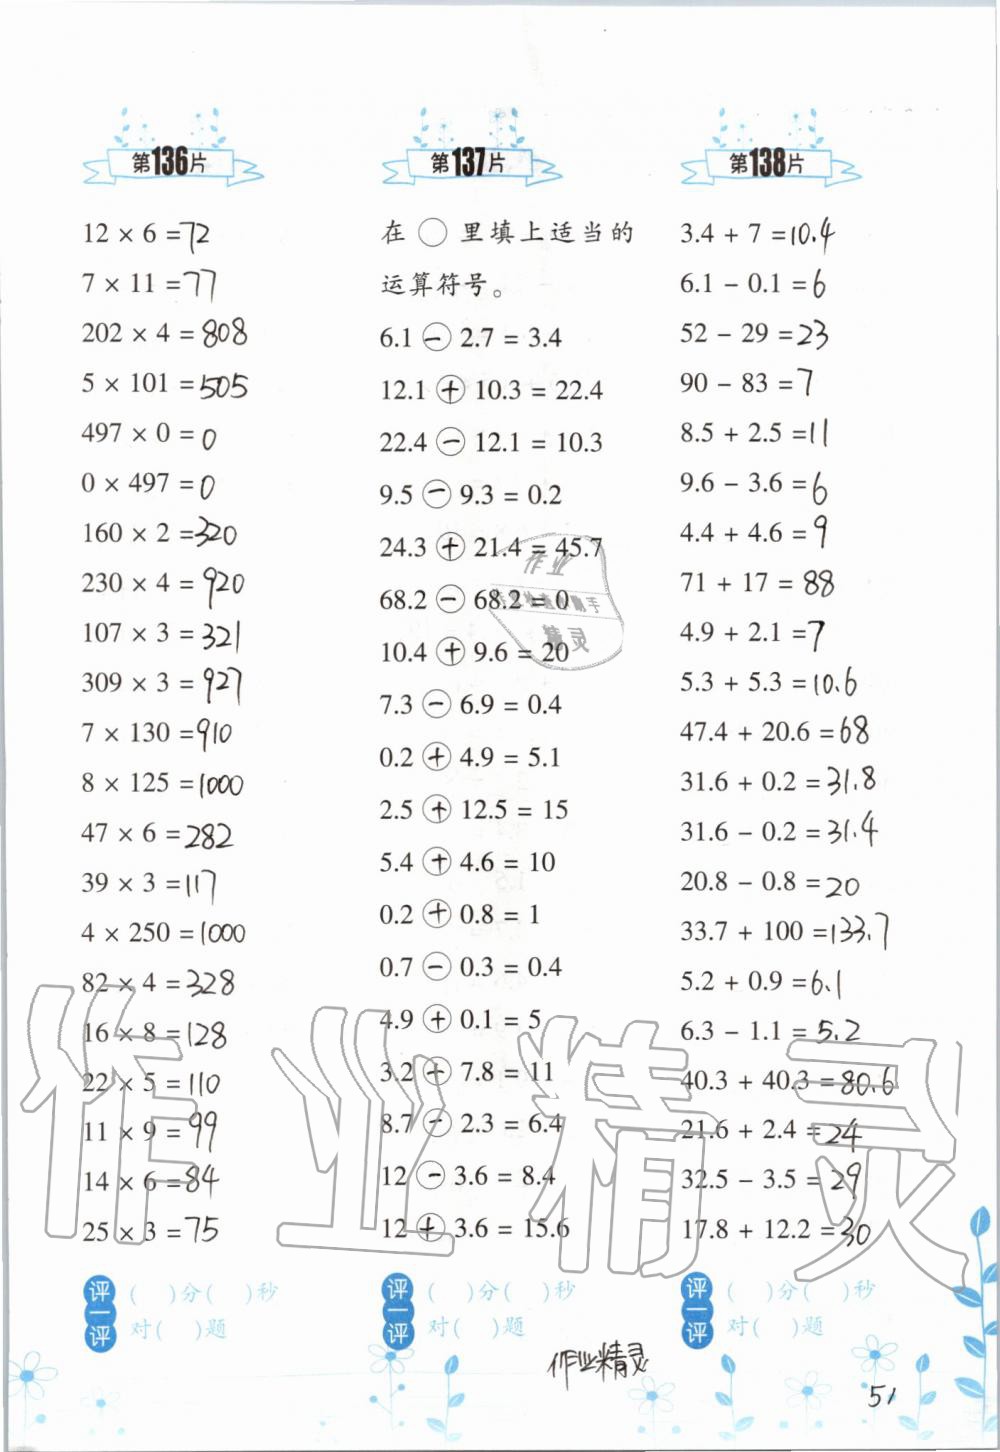 第136片
12 × 6 =72
7 × 11 =77
202 × 4 =808
5 × 101 =505
497 × 0 =0
0 × 497 =0
160 × 2 =320
230 × 4 =920
107 × 3 =321
309 × 3 =927
7 × 130 =910
8 × 125 =1000
47 × 6 =282
39 × 3 =117
4 × 250 =1000
82 × 4 =328
16 × 8 =128
22 × 5 =110
11 × 9 =99
14 × 6 =84
25 × 3 =75
评一评
( )分( )秒
对( )题
第137片
在 ○ 里填上适当的
运算符号。
6.1 − 2.7 = 3.4
12.1 + 10.3 = 22.4
22.4 − 12.1 = 10.3
9.5 − 9.3 = 0.2
24.3 + 21.4 = 45.7
68.2 − 68.2 = 0
10.4 + 9.6 = 20
7.3 − 6.9 = 0.4
0.2 + 4.9 = 5.1
2.5 + 12.5 = 15
5.4 + 4.6 = 10
0.2 + 0.8 = 1
0.7 − 0.3 = 0.4
4.9 + 0.1 = 5
3.2 + 7.8 = 11
8.7 − 2.3 = 6.4
12 − 3.6 = 8.4
12 + 3.6 = 15.6
评一评
( )分( )秒
对( )题
第138片
3.4 + 7 =10.4
6.1 − 0.1 =6
52 − 29 =23
90 − 83 =7
8.5 + 2.5 =11
9.6 − 3.6 =6
4.4 + 4.6 =9
71 + 17 =88
4.9 + 2.1 =7
5.3 + 5.3 =10.6
47.4 + 20.6 =68
31.6 + 0.2 =31.8
31.6 − 0.2 =31.4
20.8 − 0.8 =20
33.7 + 100 =133.7
5.2 + 0.9 =6.1
6.3 − 1.1 =5.2
40.3 + 40.3 =80.6
21.6 + 2.4 =24
32.5 − 3.5 =29
17.8 + 12.2 =30
评一评
( )分( )秒
对( )题
作业
精灵
作业精灵
作业精灵
51